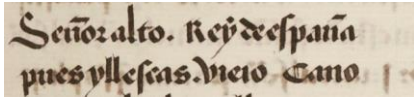 Señor alto. Rey de españa
pues yllescas. viejo Cano